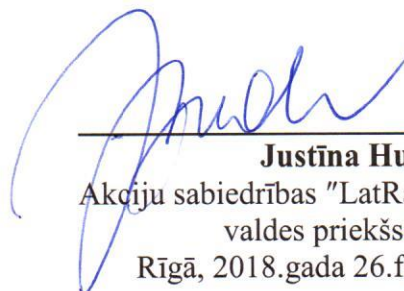 Justīna Hu
Akciju sabiedrības "LatR
valdes priekšs
Rīgā, 2018.gada 26.f